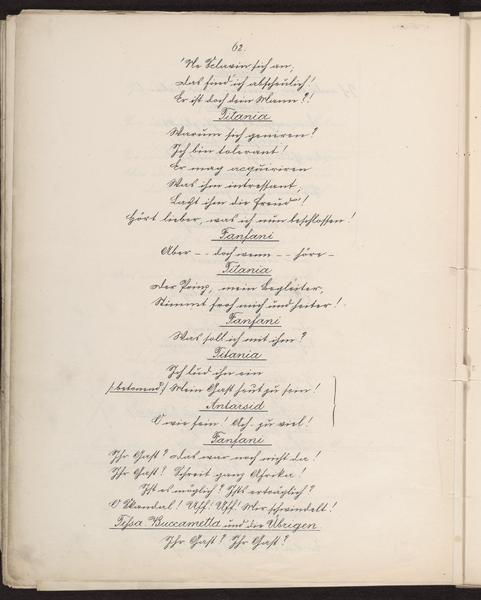 62.
'Ne Sclavin sich an,
Das find' ich abscheulich!
Er ist doch dein Mann?!
Titania
Warum sich geniren?
Ich bin tolerant!
Er mag acquiriren
Was ihm intressant,
Laßt ihm die Freud'!
Hört lieber, was ich nun beschlossen!
Fanfani
Aber - - doch wenn - - höre -
Titania
Der Prinz, mein Begleiter,
Stimmt froh mich und heiter!
Fanfani
Was soll ich mit ihm?
Titania
Ich lud ihn ein
/: betonend :/ Mein Gast heut zu sein!
Antarsid
O wie fein! Ach zu viel!
Fanfani
Ihr Gast? Das war noch nicht da!
Ihr Gast! Schreit ganz Afrika!
Ist es möglich? Ist's erträglich?
O Skandal! Uff! Uff! Mir schwindelt!
Tessa Buccametta und die Übrigen
Ihr Gast? Ihr Gast?